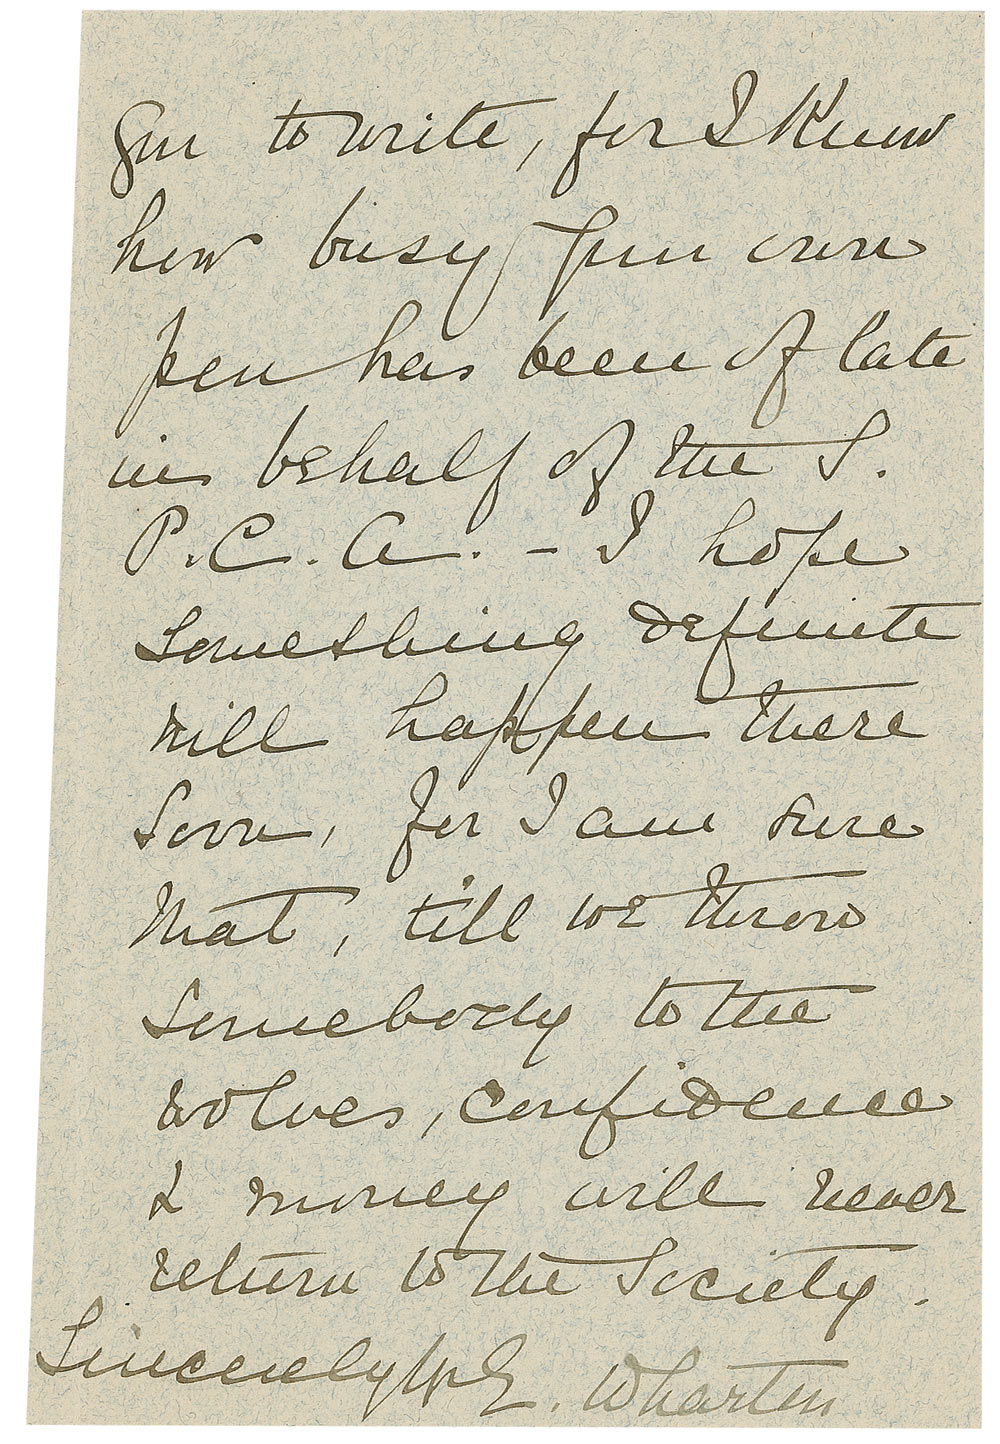 you to write, for I know
how busy your own
pen has been of late
in behalf of the S.
P.C.A. – I hope
something definite
will happen there
soon, for I am sure
that, till we throw
somebody to the
wolves, confidence
& money will never
return to the Society.
Sincerely Yrs E. Wharton